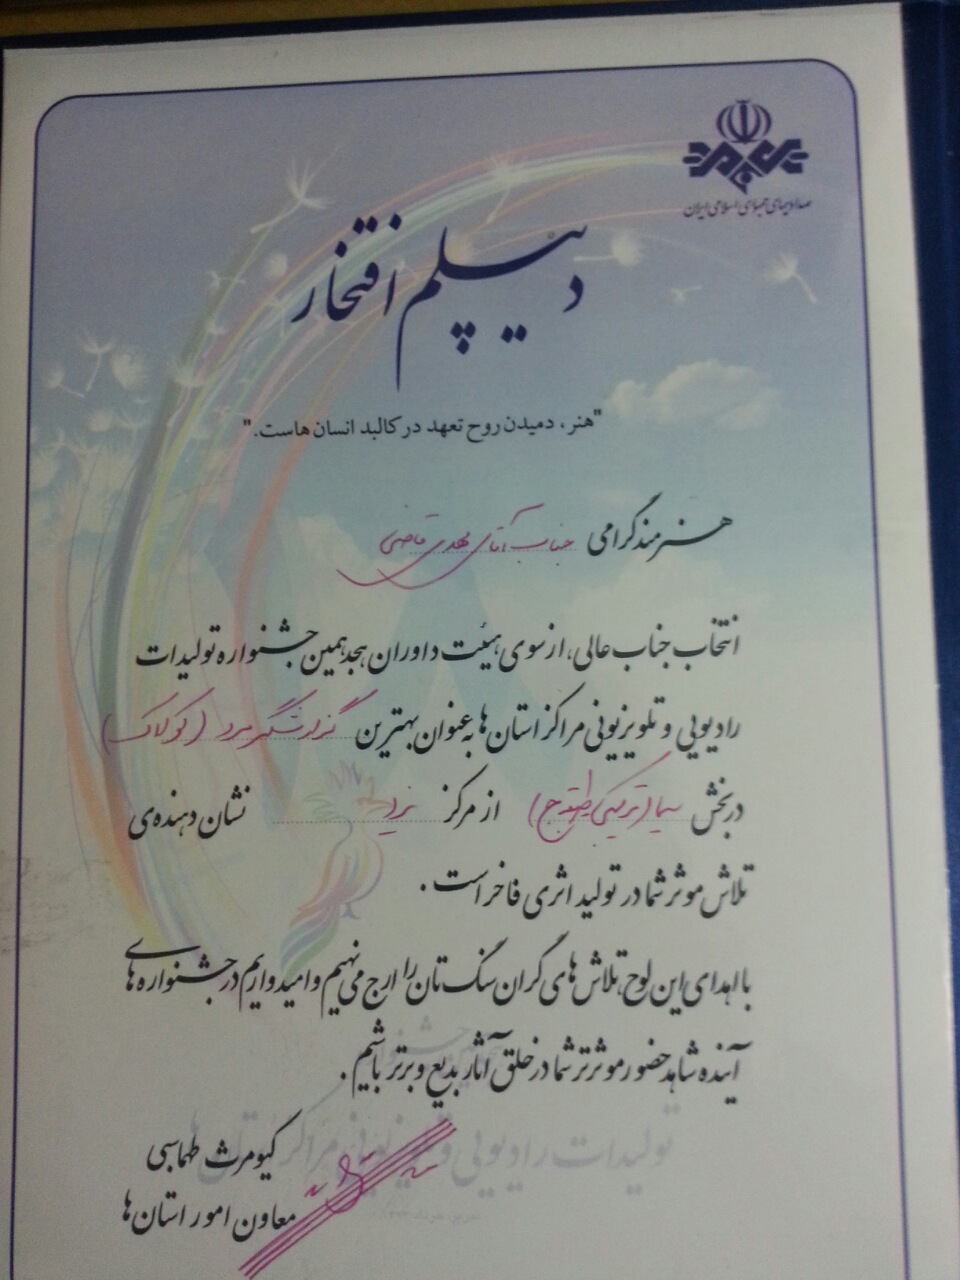 صدا و سیمای جمهوری اسلامی ایران
دیپلم افتخار
"هنر، دمیدن روح تعهد در کالبد انسان هاست."
هنرمند گرامی جناب آقای مهدی قاضی
انتخاب جناب عالی، از سوی هیئت داوران هجدهمین جشنواره تولیدات
رادیویی و تلویزیونی مراکز استان ها به عنوان بهترین گزارشگر مرد (کولاک)
در بخش سیما از مرکز یزد نشان دهنده ی
تلاش موثر شما در تولید اثری فاخر است.
با اهدای این لوح، تلاش های گران سنگ تان را ارج می نهیم و امیدواریم در جشنواره های
آینده شاهد حضور موثرتر شما در خلق آثار بدیع و برتر باشیم.
تولیدات رادیویی و تلویزیونی مراکز استان ها
کیومرث طهماسبی
معاون امور استان ها